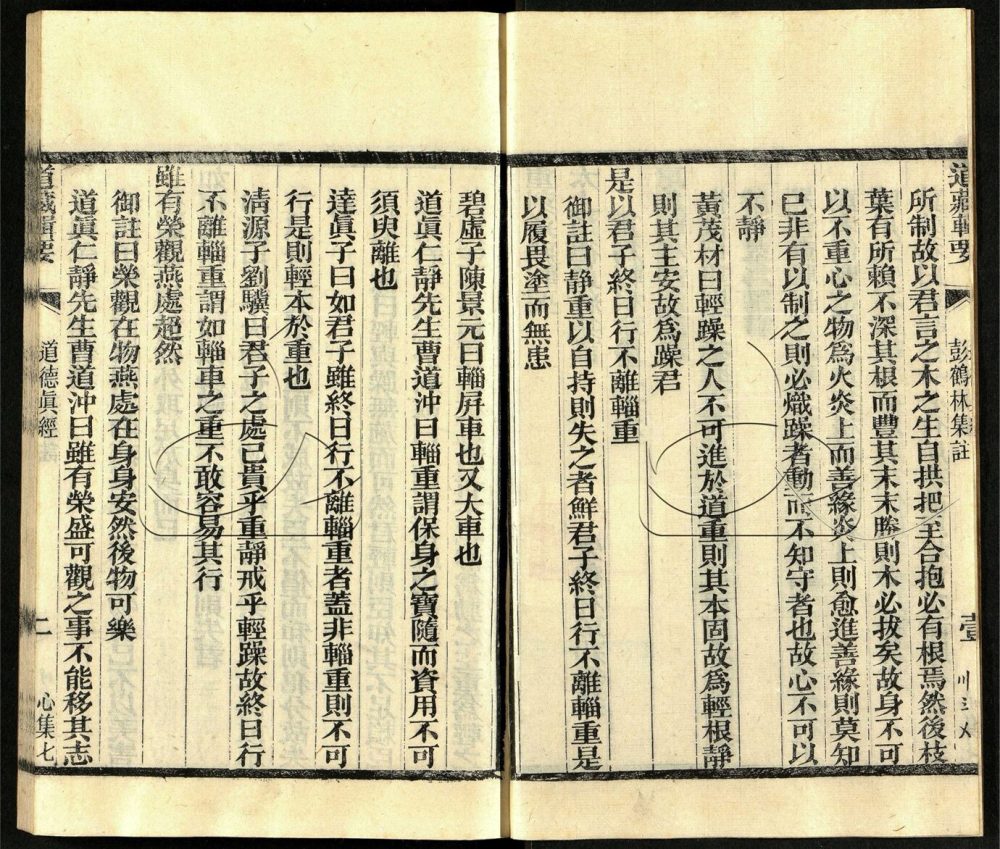 道藏輯要
彭鶴林集註
所制故以君言之木之生自拱把至合抱必有根焉然後枝
葉有所賴不深其根而豐其末末勝則木必拔矣故身不可
以不重心之物爲火炎上而善緣炎上則愈進善緣則莫知
已非有以制之則必熾躁者動而不知守者也故心不可以
不靜
黃茂材曰輕躁之人不可進於道重則其本固故爲輕根靜
則其主安故爲躁君
是以君子終日行不離輜重
御註曰靜重以自持則失之者鮮君子終日行不離輜重是
以履畏塗而無患
碧虛子陳景元曰輜屏車也又大車也
道眞仁靜先生曹道沖曰輜重謂保身之寶隨而資用不可
須臾離也
達眞子曰如君子雖終日行不離輜重者蓋非輜重則不可
行是則輕本於重也
淸源子劉驥曰君子之處己貴乎重靜戒乎輕躁故終日行
不離輜重謂如輜車之重不敢容易其行
雖有榮觀燕處超然
御註曰榮觀在物燕處在身身安然後物可樂
道眞仁靜先生曹道沖曰雖有榮盛可觀之事不能移其志
道藏輯要
道德眞經
二
心集七